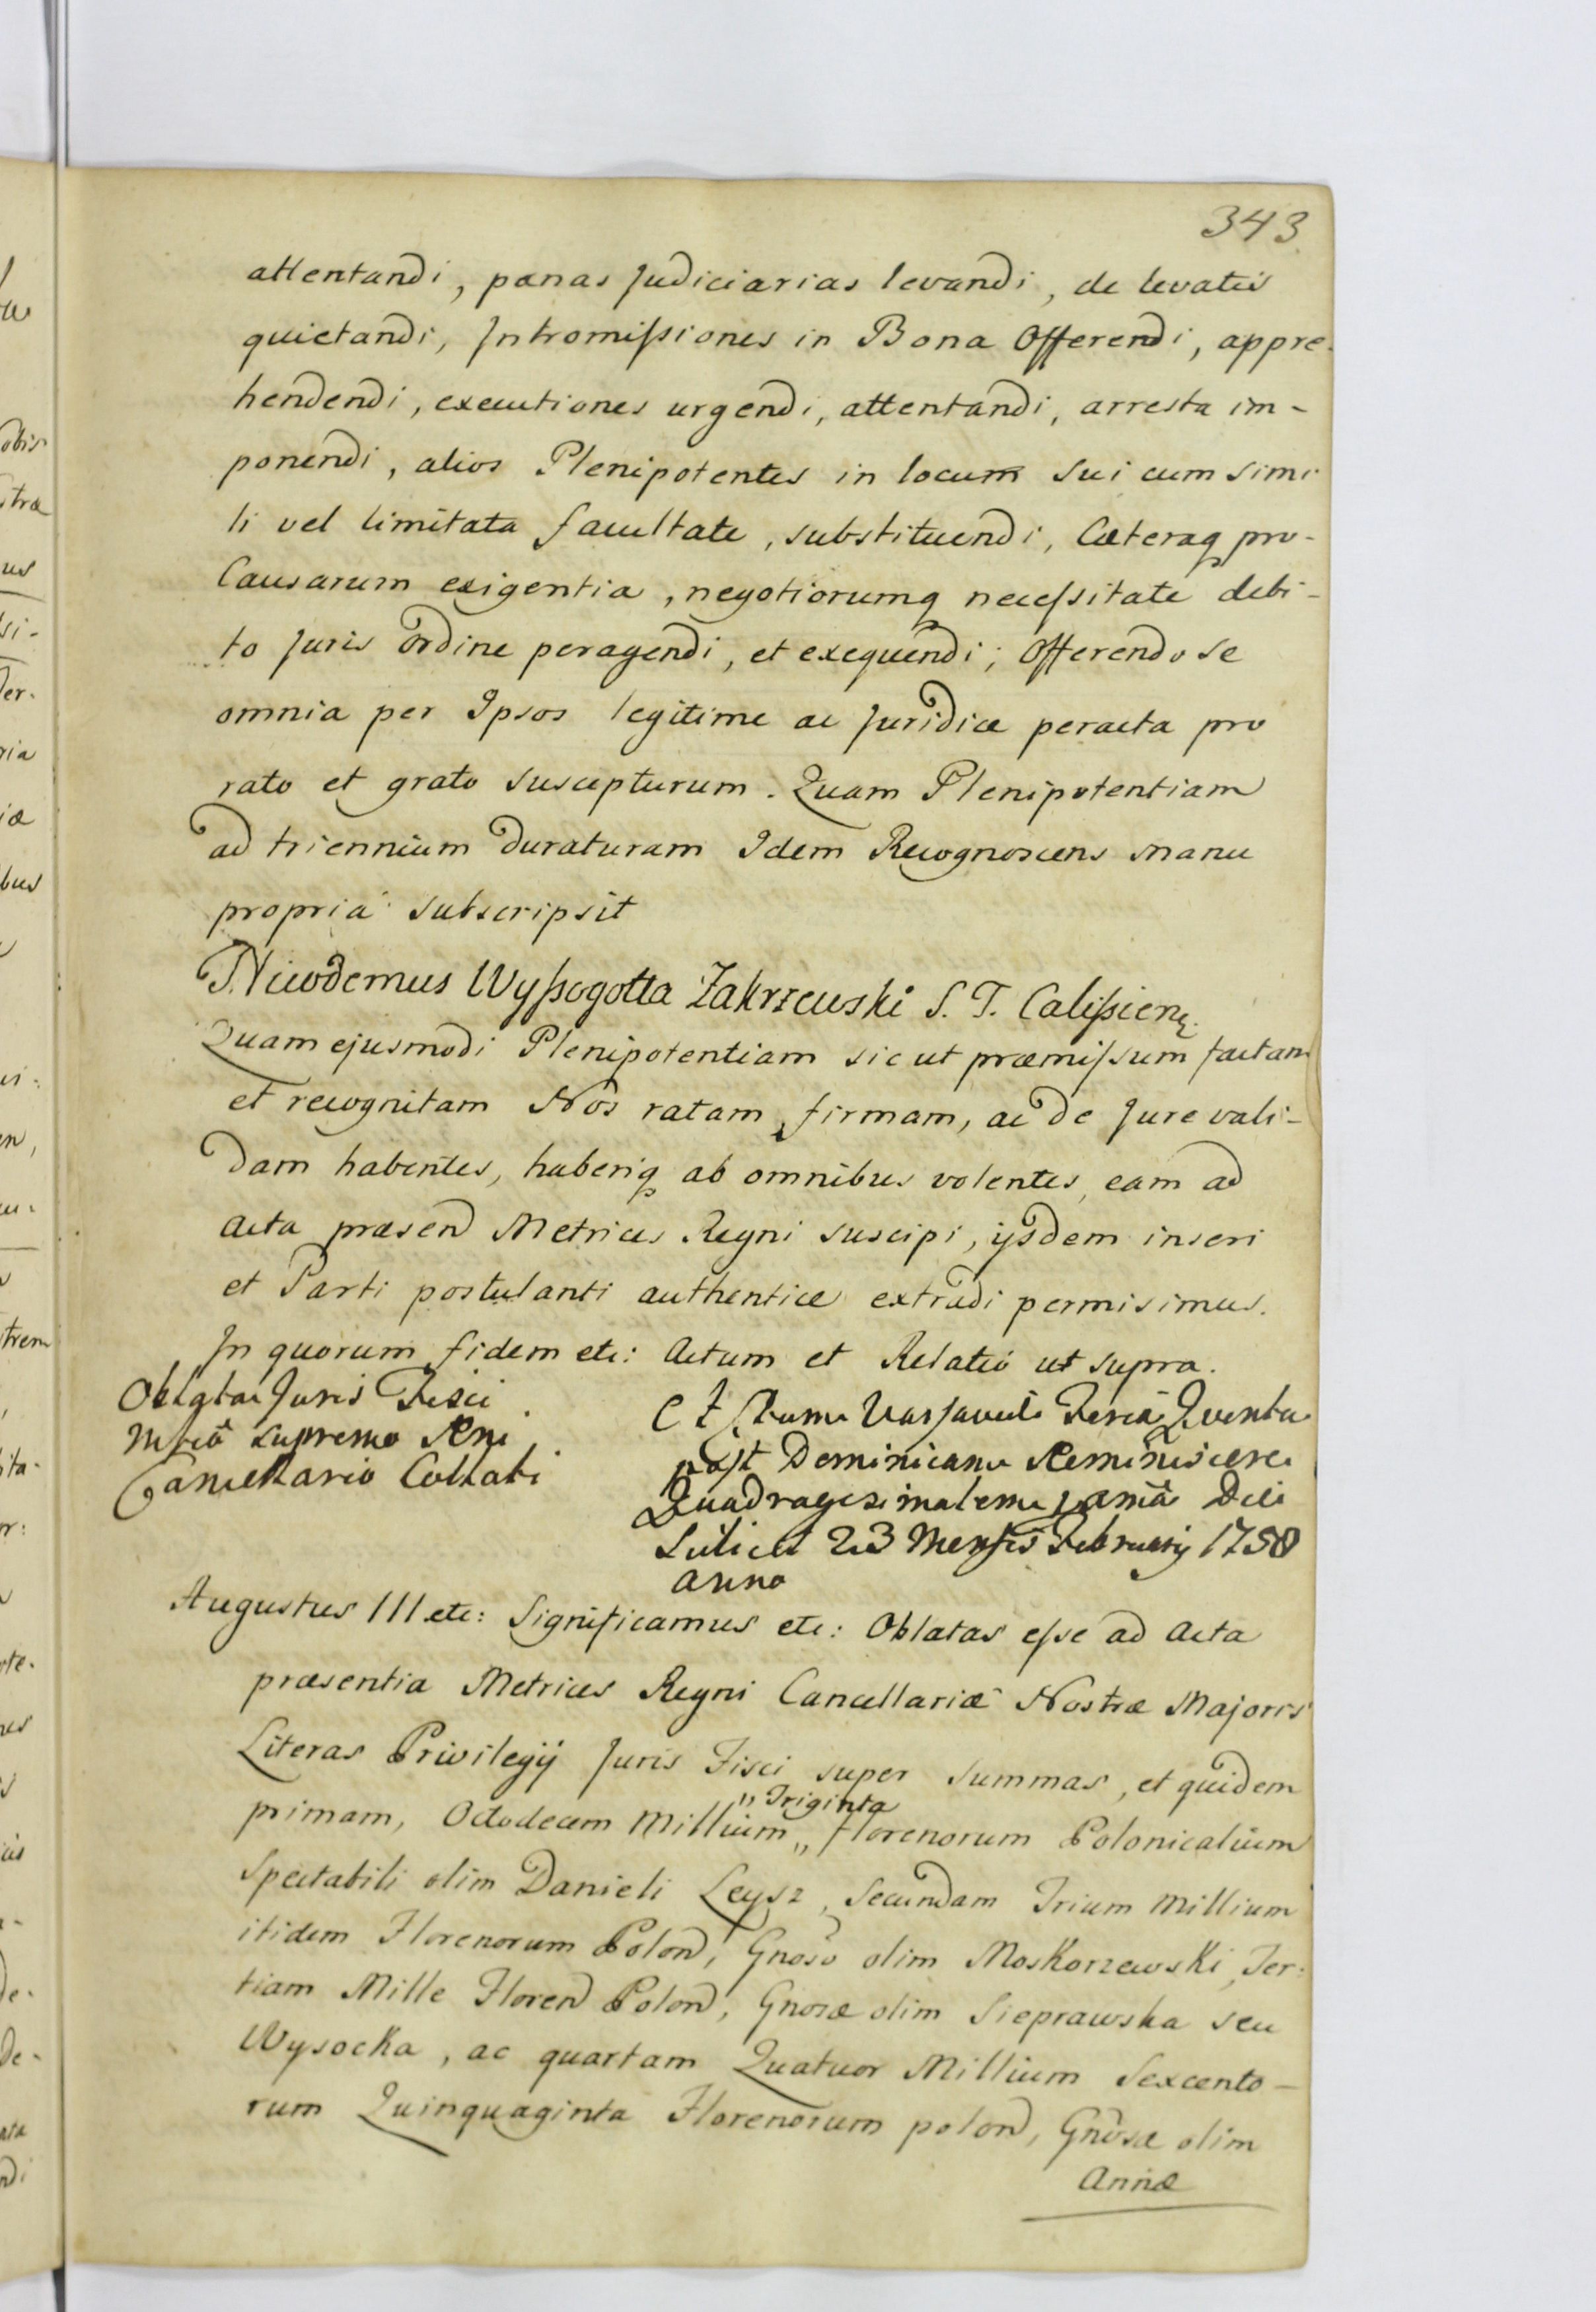 343
attentandi, pænas Judiciarias levandi, de levatis
quietandi, Intromissiones in Bona Offerendi, appre-
hendendi, executiones urgendi, attentandi, arresta im-
ponendi, alios Plenipotentes in locum sui cum simi
li vel limitata facultate, substituendi, Cæteraq pro-
Causarum exigentia, negotiorumq necessitate debi-
to Juris ordine peragendi, et exequendi; Offerendo se
omnia per Ipsos legitime ac Juridice peracta pro
rato et grato suscepturum. Quam Plenipotentiam
ad triennium duraturam Idem Recognoscens manu
propria subscripsit
Nicodemus Wyssogotta Zakrzewski S. T. Calissien
Quam ejusmodi Plenipotentiam sic ut præmissum factam
et recognitam Nos ratam, firmam, ac de Jure vali-
dam habentes, haberiq ab omnibus volentes, eam ad
Acta præsen Metrices Regni suscipi, ijsdem inseri
et Parti postulanti authentice extradi permisimus.
In quorum fidem etc: Actum et Relatio ut supra.
Oblatæ Juris Fisci
Mfco Supremo Rni
Cancellario Collati
Actum Varsaviæ Feria Quinta
post Dominicam Reminiscere
Quadragesimalem Die
Scilicet 23 Mensis Februarij 1758
Anno
Augustus III etc: Significamus etc: Oblatas esse ad Acta
præsentia Metrices Regni Cancellariæ Nostræ Majoris
Literas Privilegij Juris Fisci super summas, et quidem
primam, Octodecem Millium „ Triginta „ Florenorum Polonicalium
Spectabili olim Danieli Leysz, Secundam Trium Millium
itidem Florenorum Polon, Gnoso olim Moskorzewski, Ter-
tiam Mille Floren Polon, Gnosæ olim Sieprawska seu
Wysocka, ac quartam Quatuor Millium Sexcento-
rum Quinquaginta Florenorum polon, Gnosæ olim
Annæ